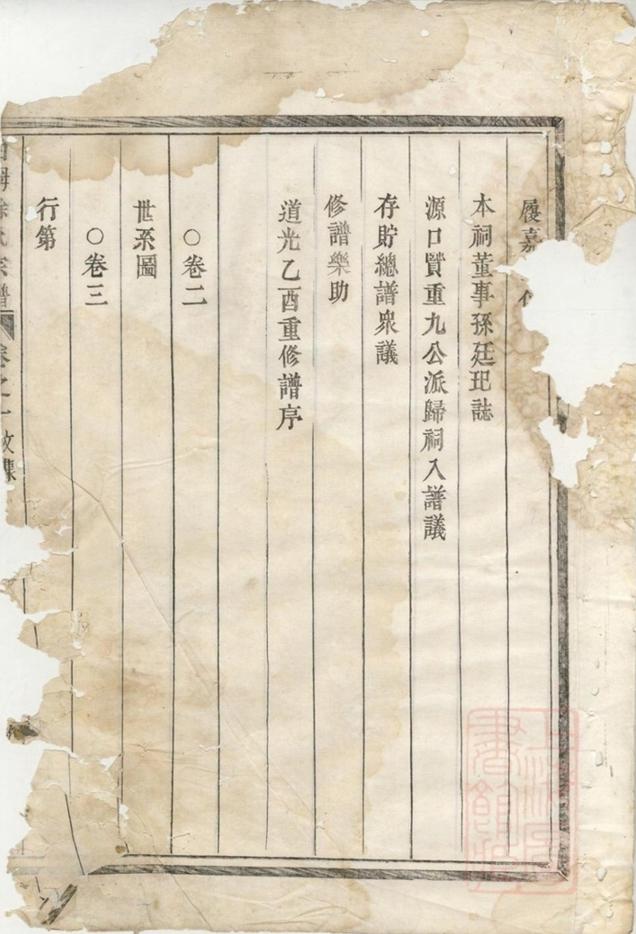 履嘉
本祠董事孫廷玘誌
源口贇重九公派歸祠入譜議
存貯總譜衆議
修譜樂助
道光乙酉重修譜序
○卷二
世系圖
○卷三
行第
徐氏宗譜 卷之一